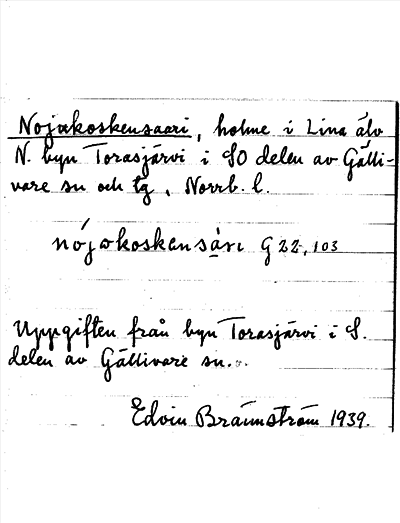 Nojakoskensaari, holme i Lina älv
N. byn Torasjärvi i SO delen av Gälli-
vare sn och tg, Norrb. l.
nójakoskensàri G 22, 103
Uppgiften från byn Torasjärvi i S.
delen av Gällivare sn.
Edvin Brännström 1939.